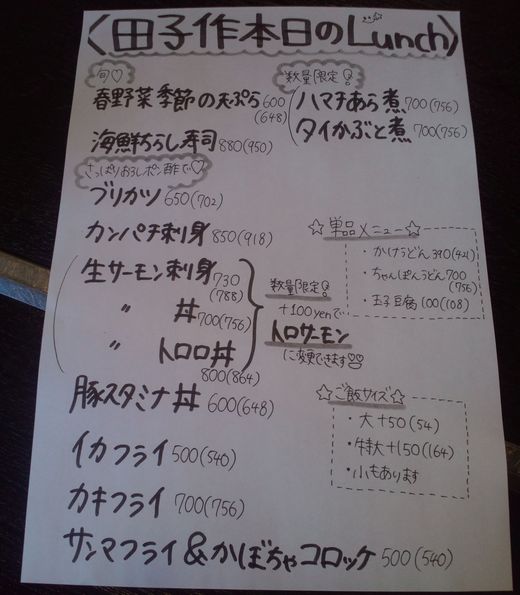 〈田子作本日のLunch〉
旬♡
春野菜季節の天ぷら600
(648)
数量限定
ハマチあら煮700(756)
タイかぶと煮 700(756)
海鮮ちらし寿司880(950)
さっぱりおろしポン酢で♡
ブリカツ 650(702)
カンパチ刺身850(918)
生サーモン刺身730
(788)
〃 丼700(756)
〃 トロロ丼
800(864)
数量限定
+100yenで
トロサーモン
に変更できます
☆単品メニュー☆
・かけうどん390(421)
・ちゃんぽんうどん700
(756)
・玉子豆腐100(108)
豚スタミナ丼600(648)
☆ご飯サイズ☆
・大+50(54)
・特大+150(164)
・小もあります
イカフライ500(540)
カキフライ 700(756)
サンマフライ&かぼちゃコロッケ 500(540)